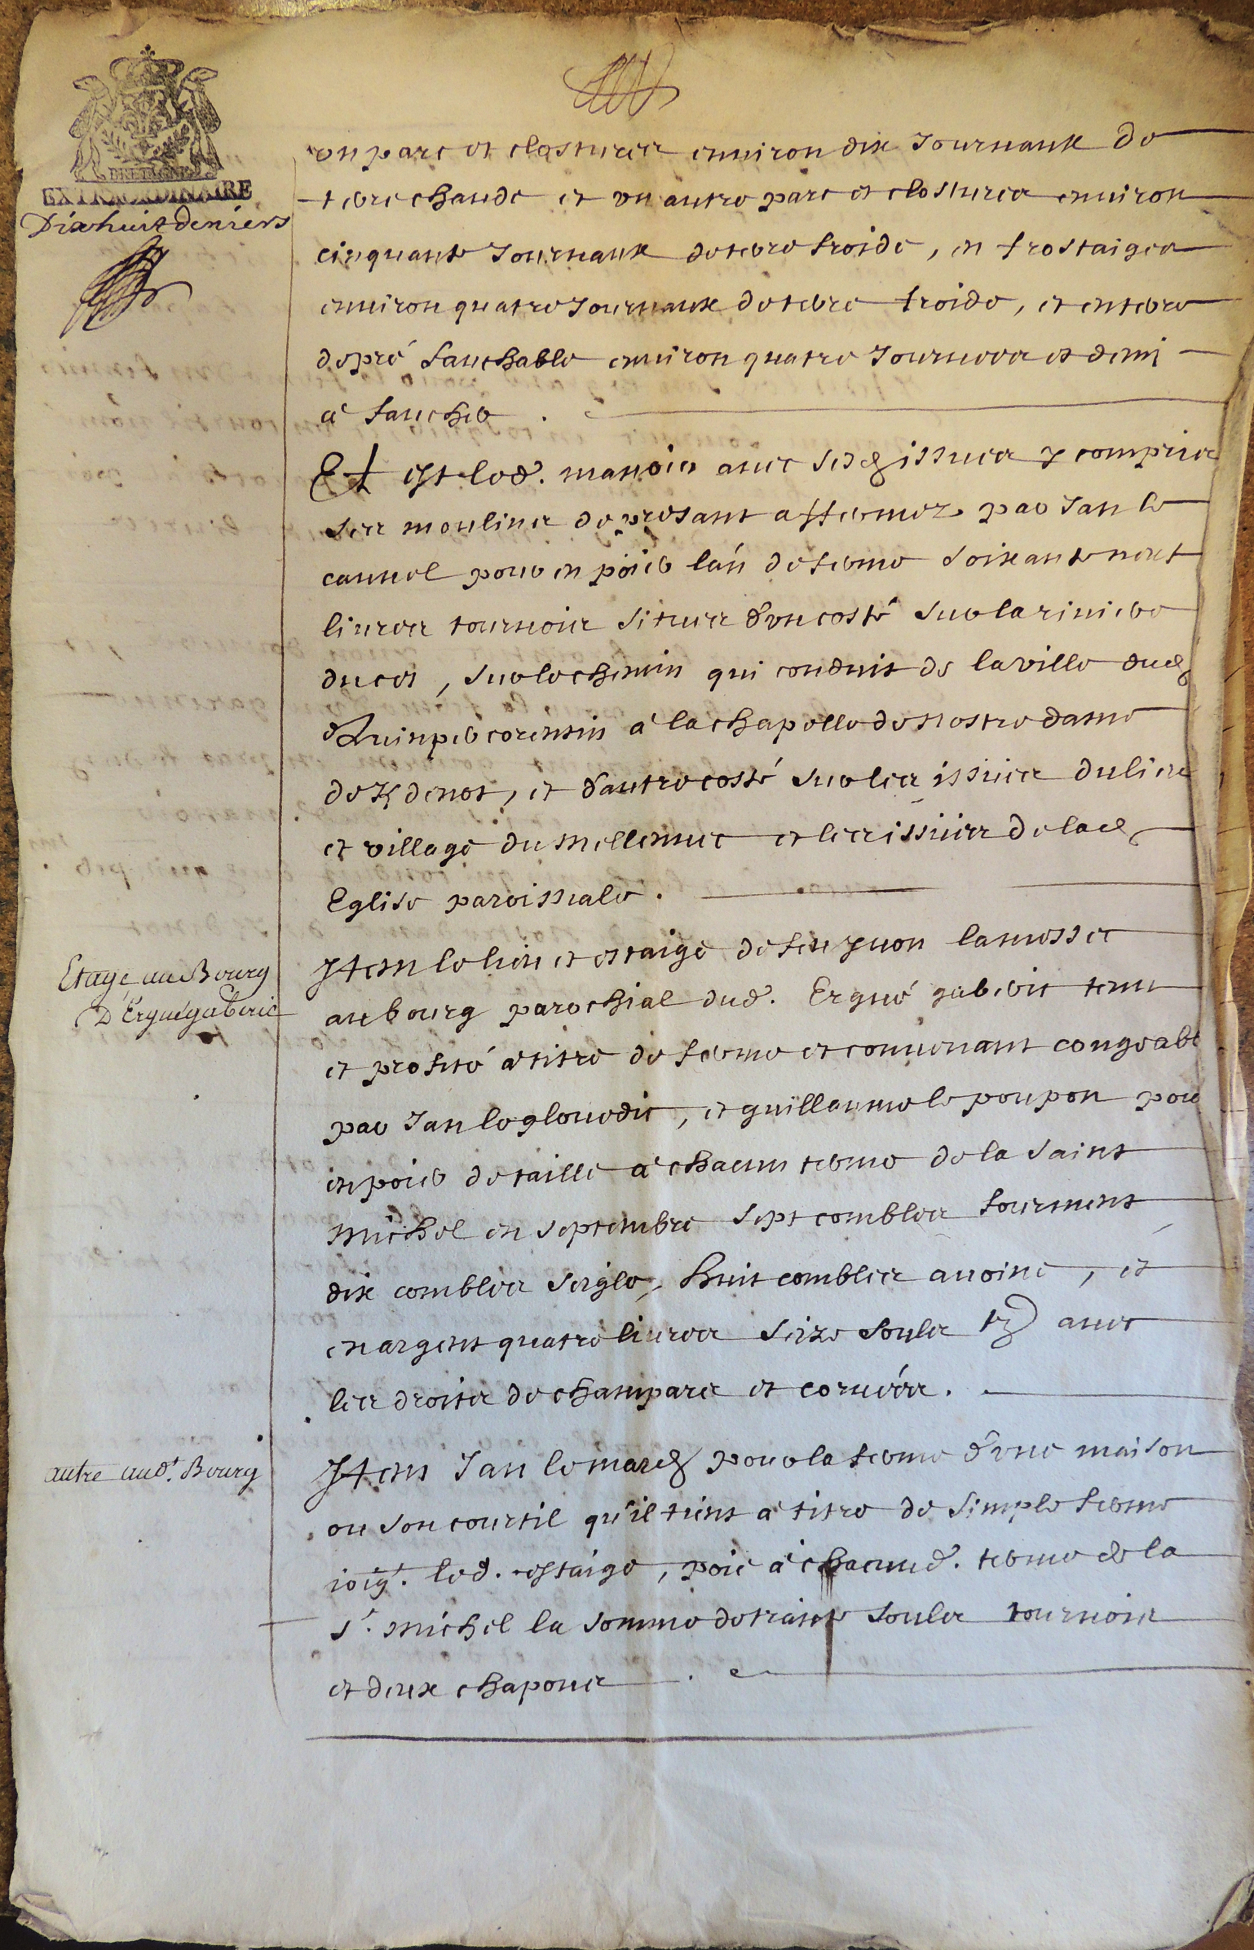 BRETAGNE
EXTRAORDINAIRE
Dixhuit deniers
un parc et clostures environ dix Journaux de
terre chaude et un autre parc et clostures environ
cinquante Journaux de terre froide, en frostaiges
environ quatre Journaux de terre froide, et en terre
de pré fauchable environ quatre Journees et demi
a faucher.
Et est led. manoir avec sesd issues y comprins
ses moulines de presant affermez par Jan le
cannel pour en poier l'an de ferme soixante neuf
livres tournois situes d'un costé sur la riviere
du cet, sur le chemin qui conduit de la ville dud
Quimpercorentin a la chapelle de nostre dame
de Kdenot, et d'autre costé sur les issues du lieu
et village du mellennec et les issües de lad
Eglise paroissiale.
Etage au Bourg
D'Ergué gaberic
Item le lieu et estaige de feu yuon lamosset
au bourg parochial dud. Ergué gaberic tenu
et profité a titre de ferme et convenant congeable
par Jan le glouedic, et guillaume le poupon pour
en poier de taille a chacun terme de la saint
michel en septembre sept combles fourment
dix combles seigle, huit combles avoine, et
en argent quatre livres seize soulz tz avec
les droits de champars et corvées.
autre aud. Bourg
Item Jan le march pour la ferme d'une maison
ou son courtil qu'il tient a titre de simple ferme
joigt. led. estaige, poie a chacund. terme de la
St. michel la somme de trante soulz tournois
et deux chapons